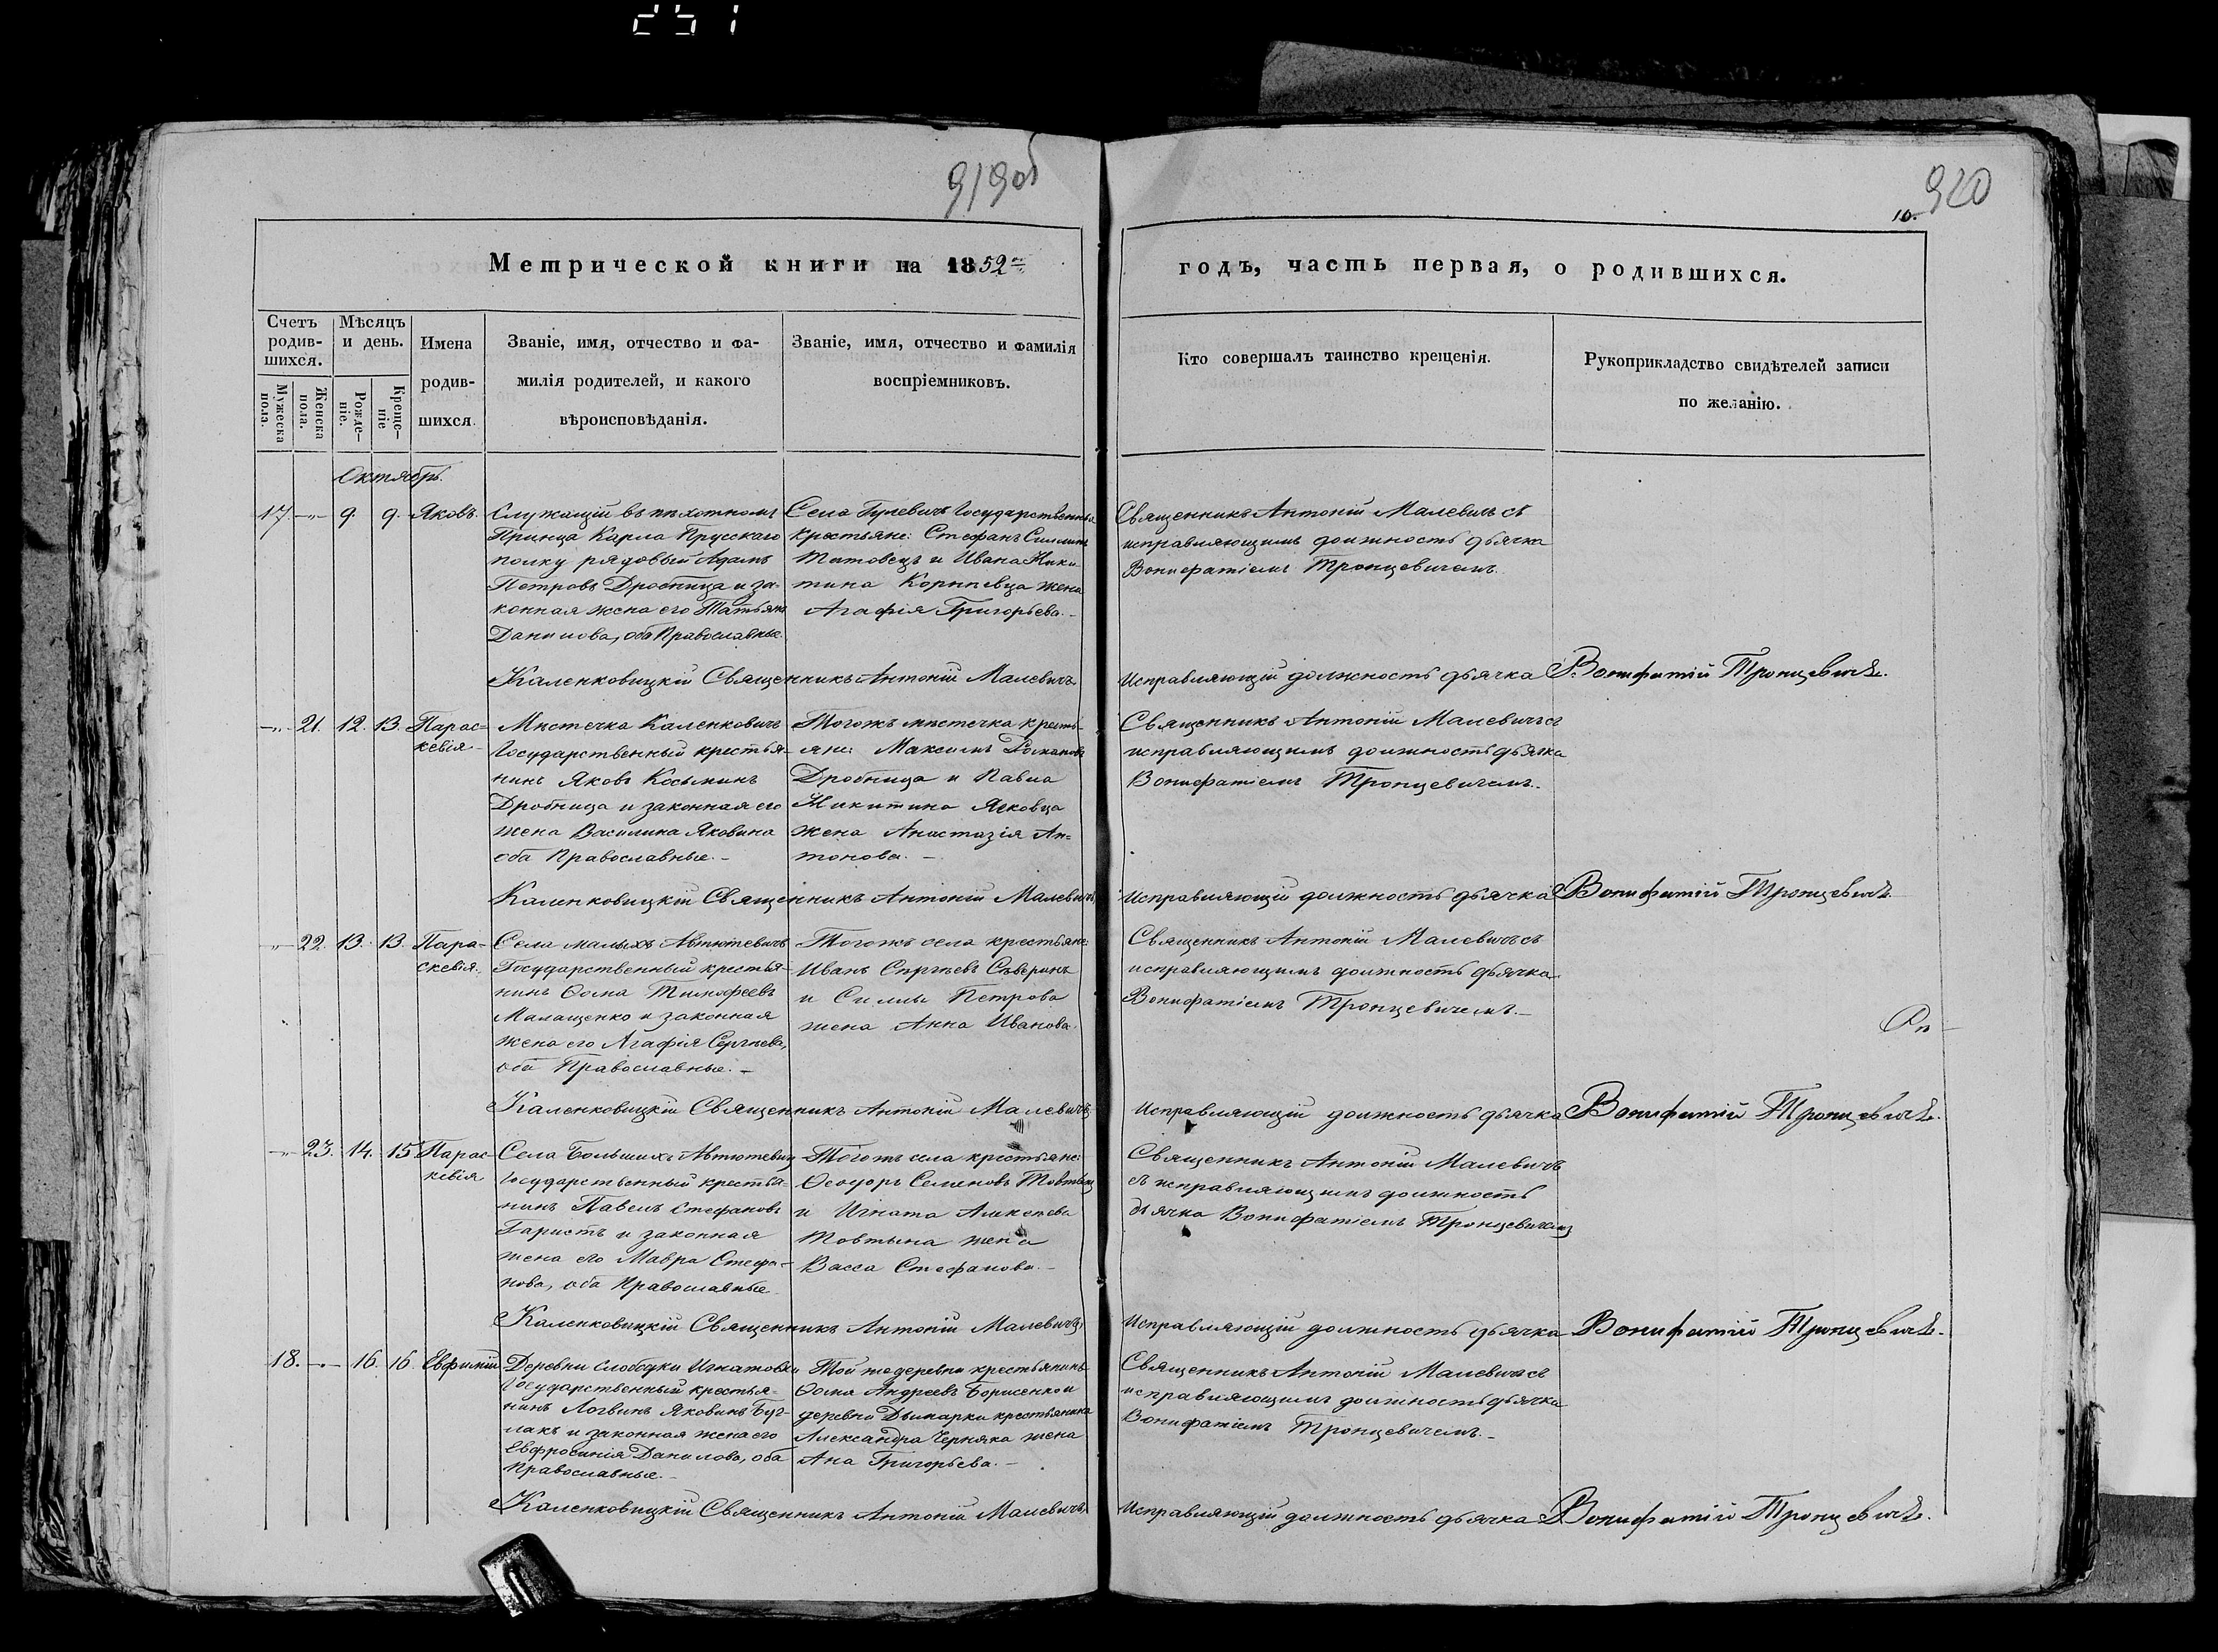 251
919об
920
10.
Метрической книги на 1852й
годъ, часть первая, о родившихся.
Счетъ родив-шихся.
Мужеска пола.
Женска пола.
Мѣсяцъ и день.
Рожде-ніе.
Креще-ніе
Имена
родив-
шихся.
Званіе, имя, отчество и фа-
милія родителей, и какого
вѣроисповѣданія.
Званіе, имя, отчество и фамилія
воспріемниковъ.
Кто совершалъ таинство крещенія.
Рукоприкладство свидѣтелей записи
по желанію.
Октябрь.
17. -„- 9. 9. Яковъ.
Служащій въ пѣхотномъ
Принца Карла Прусскаго
полку рядовый Адамъ
Петровъ Дробница и за-
конная жена его Татьяна
Данилова, оба Православные.
Села Гулевичъ Государственные
крестьяне: Стефанъ
Титовецъ и Ивана Ники-
тина жена
Агафія Григорьева.-
Священникъ Антоній Малевичъ съ
исправляющимъ должность дьячка
Вонифатіемъ Тропцевичемъ.
Каленковицкій Священникъ Антоній Малевичъ
Исправляющій должность дьячка Вонифатій Тропцевичъ.
-„- 21. 12. 13. Парас-
кевія.-
Мѣстечка Каленковичъ
Государственный крестья-
нинъ Яковъ Косьминъ
Дробница и законная его
жена Василина Яковина
оба Православные.-
Тогожъ мѣстечка кресть-
яне: Максимъ Романовъ
Дробница и Павла
Никитина Яковца
жена Анастазія Ан-
тонова.-
Священникъ Антоній Малевичъ съ
исправляющимъ должность дьячка
Вонифатіемъ Тропцевичемъ.
Каленковицкій Священникъ Антоній Малевичъ
Исправляющій должность дьячка Вонифатій Тропцевичъ.
-„- 22. 13. 13. Пара-
скевія.
Села малыхъ Автютевичъ
Государственный крестья-
нинъ Ѳома Тимофеевъ
Малащенко и законная
жена его Агафія Сергѣева,
оба Православные.-
Тогожъ села крестьяне:
Иванъ Сергѣевъ Северинъ
и Силы Петрова
жена Анна Иванова.
Священникъ Антоній Малевичъ съ
исправляющимъ должность дьячка
Вонифатіемъ Тропцевичемъ.-
Каленковицкій Священникъ Антоній Малевичъ
Исправляющій должность дьячка Вонифатій Тропцевичъ.
-„- 23. 14. 15. Парас-
кевія
Села Большихъ Автютевичъ
Государственный крестья-
нинъ Павелъ Стефановъ
Гаристъ и законная
жена его Мавра Стефа-
нова, оба Православные.
Тогожъ села крестьяне:
Ѳеодоръ Семеновъ Товтынъ
и Игната Алексѣева
Товтына жена
Васса Стефанова.-
Священникъ Антоній Малевичъ
съ исправляющимъ должность
дьячка Вонифатіемъ Тропцевичемъ
Каленковицкій Священникъ Антоній Малевичъ
Исправляющій должность дьячка Вонифатій Тропцевичъ.
18. -„- 16. 16. Евфимій
Деревни слободки Игнатовки
Государственный крестья-
нинъ Логвинъ Яковинъ Буг-
лакъ и законная жена его
Евфросинія Данилова, оба
Православные.-
Той же деревни крестьянинъ
Ѳома Андреевъ Борисенко и
деревни Дымарки крестьянина
Александра Черняка жена
Ана Григорьева.-
Священникъ Антоній Малевичъ съ
исправляющимъ должность дьячка
Вонифатіемъ Тропцевичемъ.-
Каленковицкій Священникъ Антоній Малевичъ
Исправляющій должность дьячка Вонифатій Тропцевичъ.